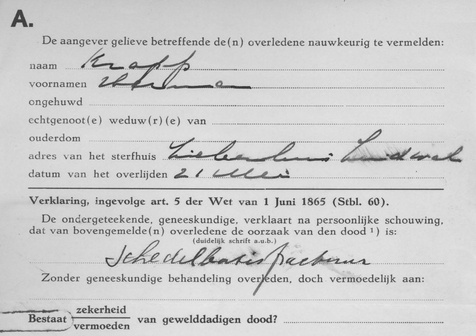 A.
De aangever gelieve betreffende de(n) overledene nauwkeurig te vermelden:
naam Krapp
voornamen Herman
ongehuwd
echtgenoot(e) weduw(r)(e) van
ouderdom
adres van het sterfhuis
datum van het overlijden 21 Mei
Verklaring, ingevolge art. 5 der Wet van 1 Juni 1865 (Stbl. 60).
De ondergeteekende, geneeskundige, verklaart na persoonlijke schouwing,
dat van bovengemelde(n) overledene de oorzaak van den dood ¹) is:
(duidelijk schrift a.u.b.)
Schedelbasisfractuur
Zonder geneeskundige behandeling overleden, doch vermoedelijk aan:
Bestaat zekerheid van gewelddadigen dood?
vermoeden